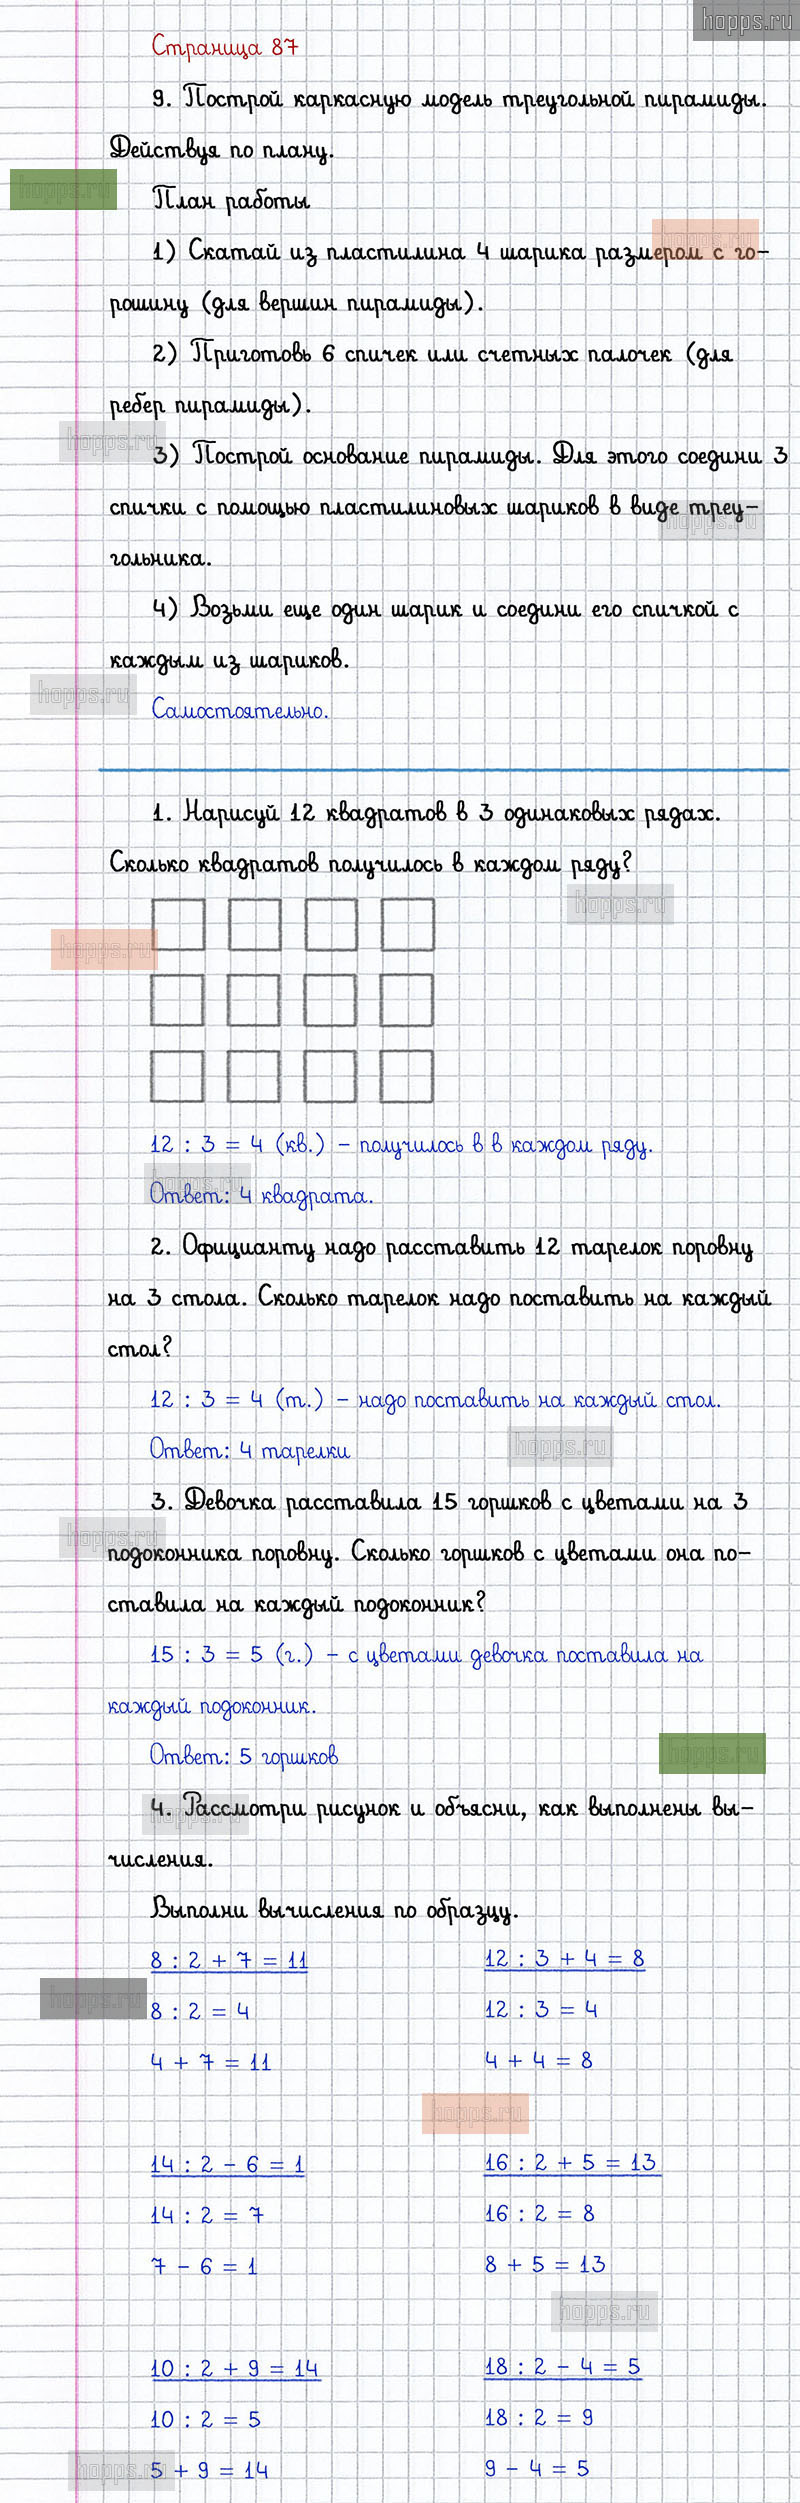 hopps.ru
Страница 87
9. Построй каркасную модель треугольной пирамиды.
Действуя по плану.
hopps.ru
План работы
hopps.ru
1) Скатай из пластилина 4 шарика размером с го-
рошину (для вершин пирамиды).
2) Приготовь 6 спичек или счетных палочек (для
ребер пирамиды).
hopps.ru
3) Построй основание пирамиды. Для этого соедини 3
спички с помощью пластилиновых шариков в виде треу-
hopps.ru
гольника.
4) Возьми еще один шарик и соедини его спичкой с
каждым из шариков.
hopps.ru
Самостоятельно.
1. Нарисуй 12 квадратов в 3 одинаковых рядах.
Сколько квадратов получилось в каждом ряду?
hopps.ru
hopps.ru
12 : 3 = 4 (кв.) – получилось в в каждом ряду.
hopps.ru
Ответ: 4 квадрата.
2. Официанту надо расставить 12 тарелок поровну
на 3 стола. Сколько тарелок надо поставить на каждый
стол?
12 : 3 = 4 (т.) – надо поставить на каждый стол.
Ответ: 4 тарелки
hopps.ru
3. Девочка расставила 15 горшков с цветами на 3
hopps.ru
подоконника поровну. Сколько горшков с цветами она по-
ставила на каждый подоконник?
15 : 3 = 5 (г.) – с цветами девочка поставила на
каждый подоконник.
Ответ: 5 горшков
hopps.ru
4. Рассмотри рисунок и объясни, как выполнены вы-
hopps.ru
числения.
Выполни вычисления по образцу.
8 : 2 + 7 = 11 12 : 3 + 4 = 8
hopps.ru
8 : 2 = 4 12 : 3 = 4
4 + 7 = 11 4 + 4 = 8
hopps.ru
14 : 2 – 6 = 1 16 : 2 + 5 = 13
14 : 2 = 7 16 : 2 = 8
7 – 6 = 1 8 + 5 = 13
hopps.ru
10 : 2 + 9 = 14 18 : 2 – 4 = 5
10 : 2 = 5 18 : 2 = 9
hopps.ru
5 + 9 = 14 9 – 4 = 5